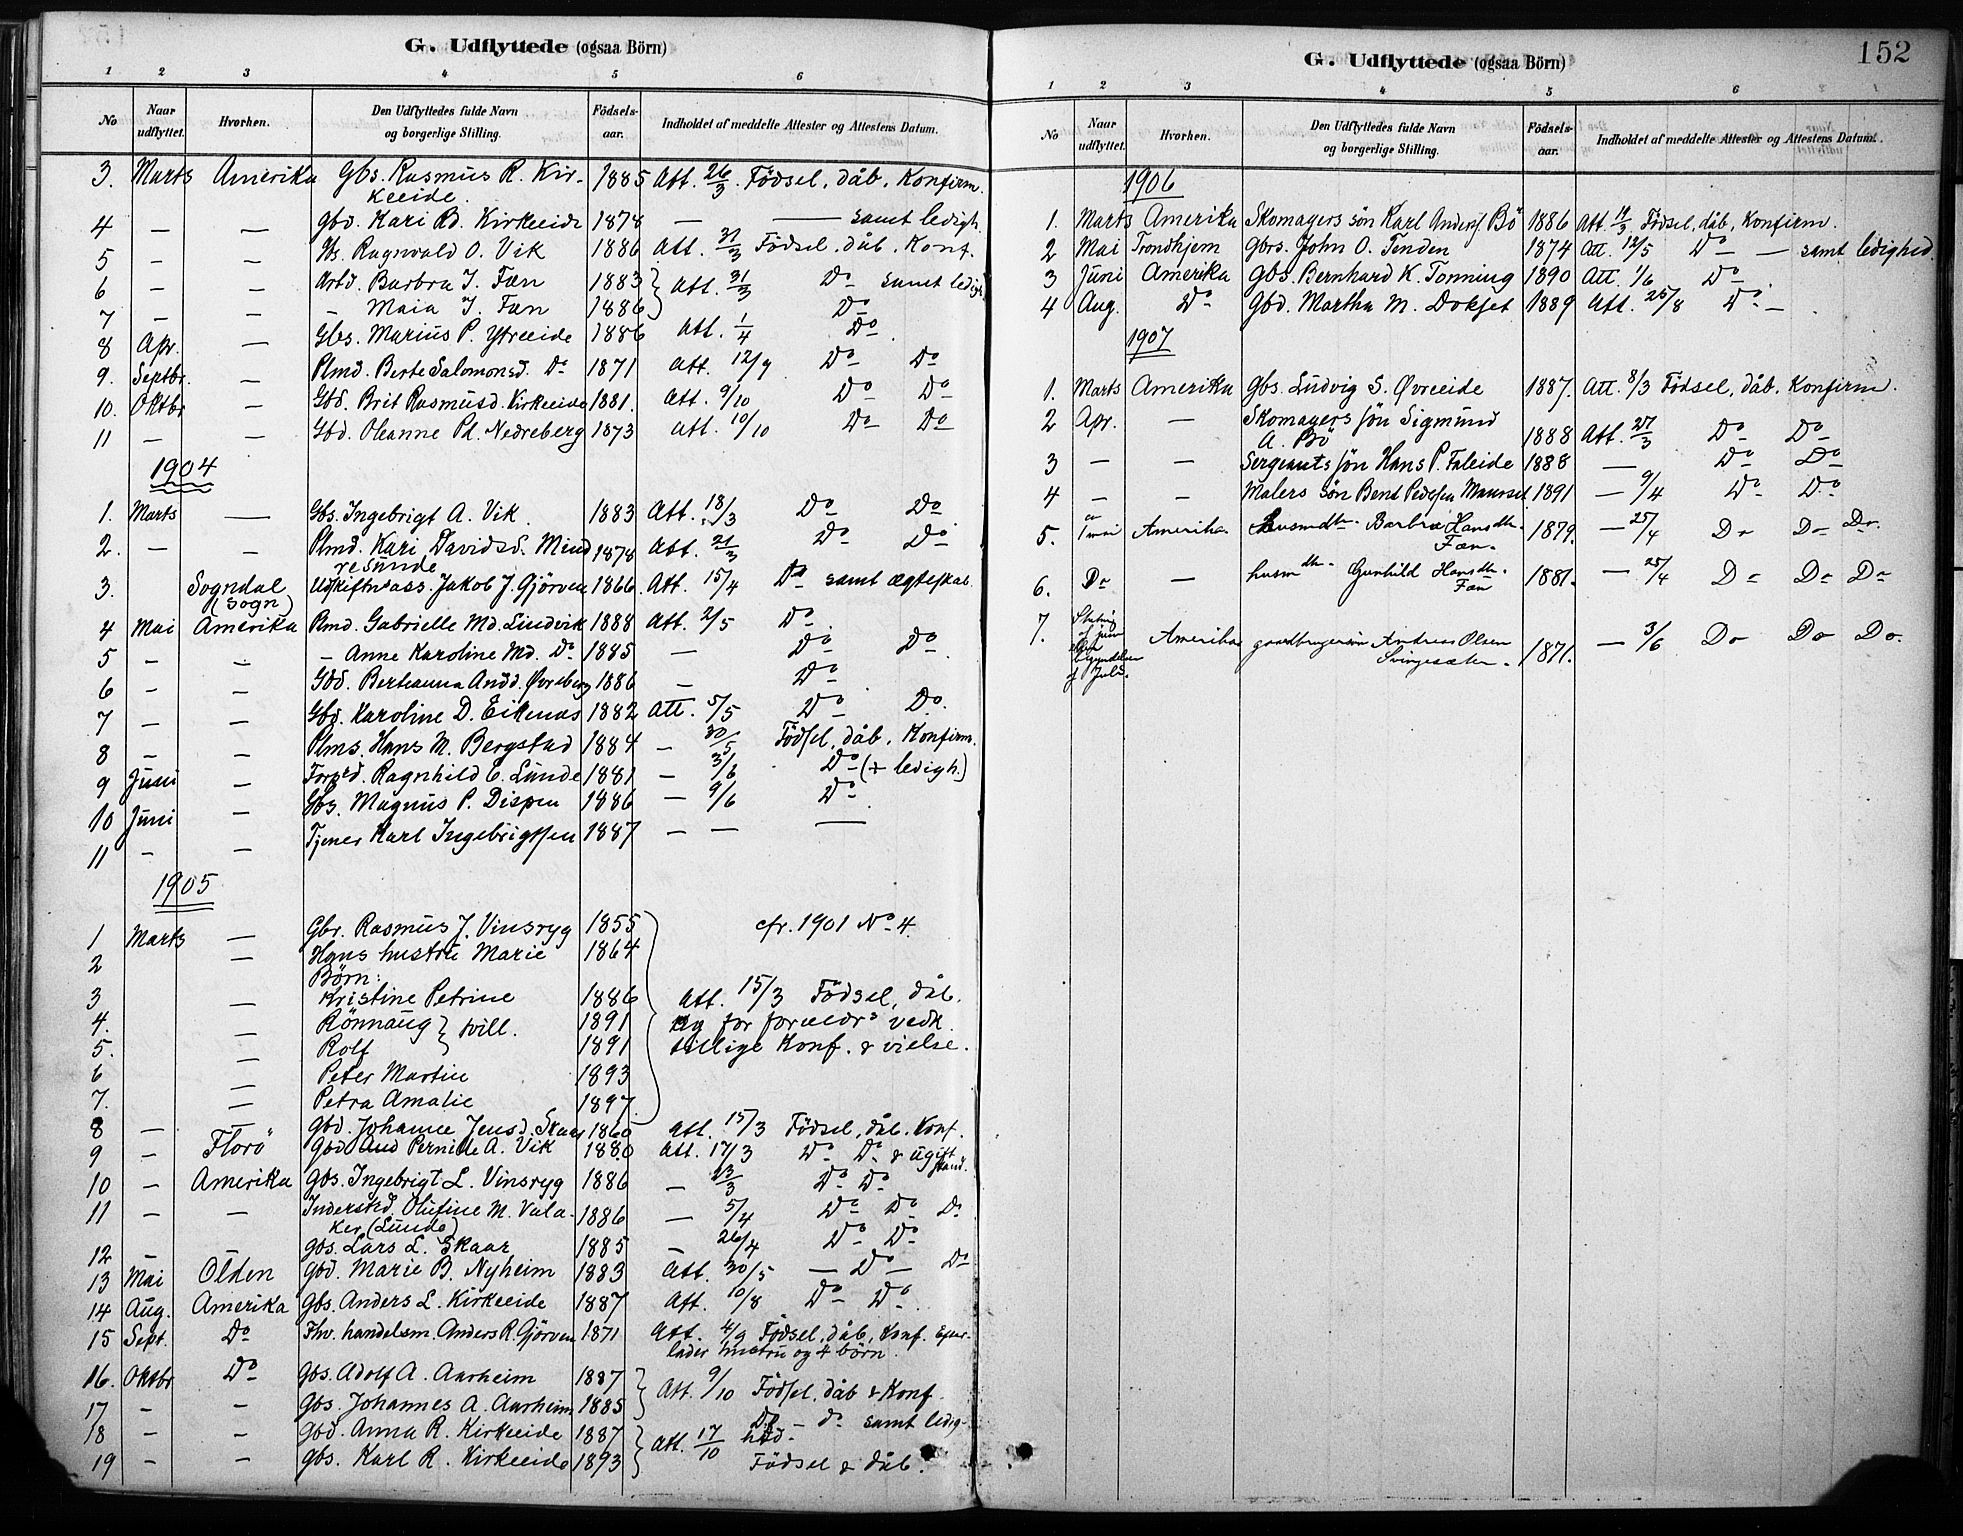 G. Udflyttede (ogsaa Börn)
1 2 3 4 5 6
No Naar udflyttet. Hvorhen. Den Udflyttedes fulde Navn og borgerlige Stilling. Födsels-aar. Indholdet af meddelte Attester og Attestens Datum.
3. Marts Amerika Gbs. Rasmus R. Kir- 1885 Att. 26/3. Födsel, dåb, Konfirm.
keeide.
4 — — Gbd. Kari Bd. Kirkeeide 1878 — — samt ledigh.
5 — — Gbs. Ragnvald O. Vik 1886 Att. 31/3 Födsel, dåb, Konf.
6 — — Arbd. Barbra J. Fæn 1883 Att. 31/3 Do samt ledigh
7 — — — Maia J. Fæn 1886 Do
8 Apr. — Gbs. Marius P. Ytreeide 1886 Att. 1/4 Do
9. Septbr. — Plmd. Berte Salomonsd. Do 1871 Att. 12/9 Do Do
10. Oktbr — Gbd. Brit Rasmusd. Kirkeeide 1881. Att. 9/10 Do Do
11 — — Gbd. Oleanne Pd. Nedreberg 1873 Att. 10/10 Do Do
1904
1. Marts — Gbs. Ingebrigt A. Vik 1883 Att. 18/3 Do Do
2. — — Plmd. Kari Davidsd. Mind 1878 Att. 21/3 Do Do
resunde
3. Sogndal Udskiftn.ass. Jakob J. Gjörven 1866. Att. 15/4 Do samt ægteskab.
(Sogn)
4 Mai Amerika Rmd. Gabrielle Md. Lindvik 1888 Att. 2/5 Do
5 — — — Anne Karoline Md. Do 1885 — Do Do
6 — — Gbd. Bertianna Andd. Øvreberg 1886 — Do
7 — — Gbd. Karoline D. Eikenæs 1882 Att. 5/5 Do Do.
8 — — Plms. Hans M. Bergstad 1884 — 30/5 Födsel, dåb, Konfirm.
9 Juni — Ragnhild E. Lunde 1881 — 3/6 Do (+ ledigh.)
10 Juni — Gbs. Magnus P. Dispen 1886 — 9/6 Do
11 — — Tjener Karl Ingebrigtsen 1887 — — —
1905
1 Marts — Gbr. Rasmus J. Vinsryg 1855 cfr. 1901 No 4.
2 — Hans hustru Marie 1864
Börn:
3 — Kristine Petrine 1886 Att. 15/3 Födsel, dåb.
4. — Rönnaug } tvill. 1891 og for foreldrs vedk.
5. — Rolf 1891 tillige Konf. & vielse.
6 — Peter Martin 1893
7. — Petra Amalie 1897.
8 — — Gbd. Johanne Jensd. Skaar 1860 Att. 15/3 Födsel, dåb, Konf.
9 — Florö Gbd And Pernille A. Vik 1880 Att. 17/3 Do Do & ugift stand.
10 — Amerika Gbs. Ingebrigt L. Vinsryg 1886 — 23/3 Do Do
11 — — Inderstd. Olufine M. Vala- 1886 — 5/4 Do Do Do
ker (Lunde)
12 — — Gbs. Lars L. Skaar 1885 — 26/4 Do Do
13 Mai Olden Gbd. Marie B. Nyheim 1883 Att. 30/5 — Do — Do
14 Aug. Amerika Gbs. Anders L. Kirkeeide 1887 Att. 10/8 Do Do
15 Sept. Do Fhv. handelsm. Anders R. Gjörven 1871 Att. 4/9 Födsel, dåb, Konf. Efter-
lader hustru og 4 börn.
16. Oktbr Do Gbs. Adolf A. Aarheim 1887 Att. 9/10 Födsel, dåb & Konf.
17 — — Gbs. Johannes A. Aarheim 1885
18 — — Gbd. Anna R. Kirkeeide 1887 Att. 17/10 Do — do samt ledig-
hed.
19 — — Gbs. Karl R. Kirkeeide 1893 Födsel & dåb.
G. Udflyttede (ogsaa Börn) 152
1 2 3 4 5 6
No Naar udflyttet. Hvorhen. Den Udflyttedes fulde Navn og borgerlige Stilling. Födsels-aar. Indholdet af meddelte Attester og Attestens Datum.
1906
1. Marts Amerika Skomagers sön Karl Anders. Bö 1886 Att. Födsel, dåb, Konfirm.
2 Mai Trondhjem Gbrs. John O. Tenden 1874 Att. 12/5 Do — samt ledighed.
3 Juni Amerika Gbs. Bernhard K. Tonning 1890 Att. 1/6 Do
4 Aug. Do Gbd. Martha M. Dokset 1889 Att. 25/8 Do —
1907
1. Marts Amerika Gbs. Ludvig S. Øvreeide 1887. Att. 8/3 Födsel, dåb, Konfirm.
2 Apr. — Skomagers sön Sigmund
A. Bö 1888 Att. 27/3 Do Do
3 — — Sergeants sön Hans P. Faleide 1888 — Do Do
4 — — Malers sön Bent Pedersen Maurset 1891 — 9/4 Do Do
5. Amerika Husmdtr. Barbra Hansdtr. 1879. — 25/4 Do Do Do.
Fæn.
6. Do — husmdtr. Gunhild Hansdtr. 1881. — 25/4 Do Do Do
Fæn
7. Slutning af juni Amerika gaardbrugersön Andreas Olsen — 3/6 Do Do Do.
begyndelsen af Juli. Svingesæter. 1871.